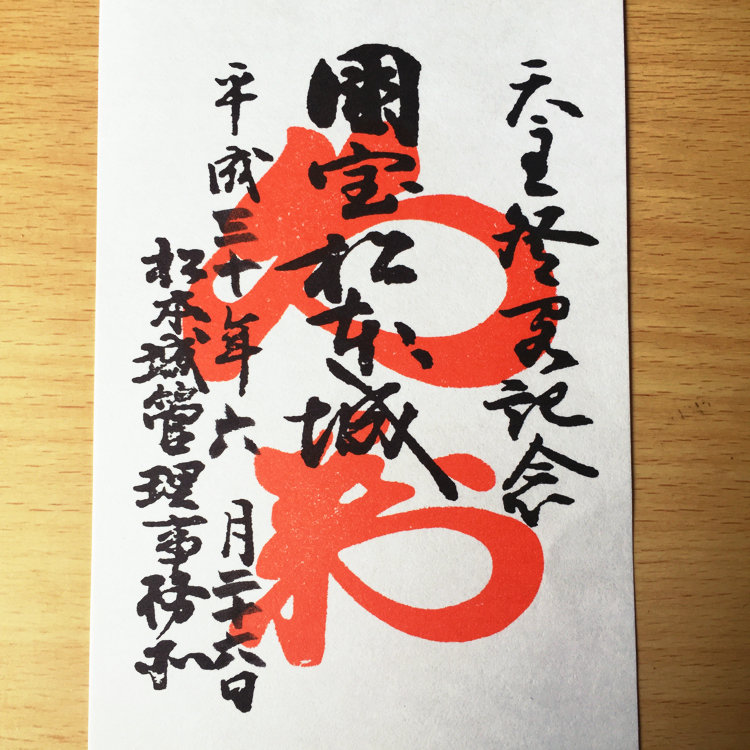 天主登閣記念
國宝松本城
平成三十年六月二十六日
松本城管理事務所